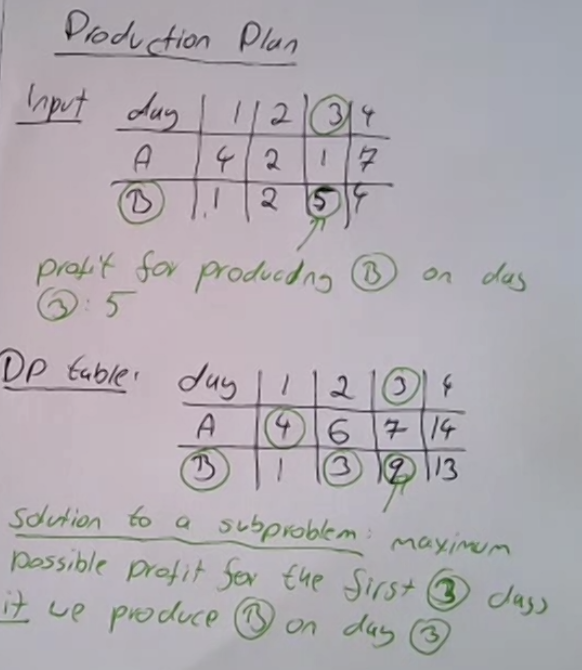 Production Plan
Input day 1 2 3 4
A 4 2 1 7
B 1 2 5 4
profit for producing B on day
3: 5
DP table: day 1 2 3 4
A 4 6 7 14
B 1 3 9 13
solution to a subproblem: maximum
possible profit for the first 3 days
if we produce B on day 3